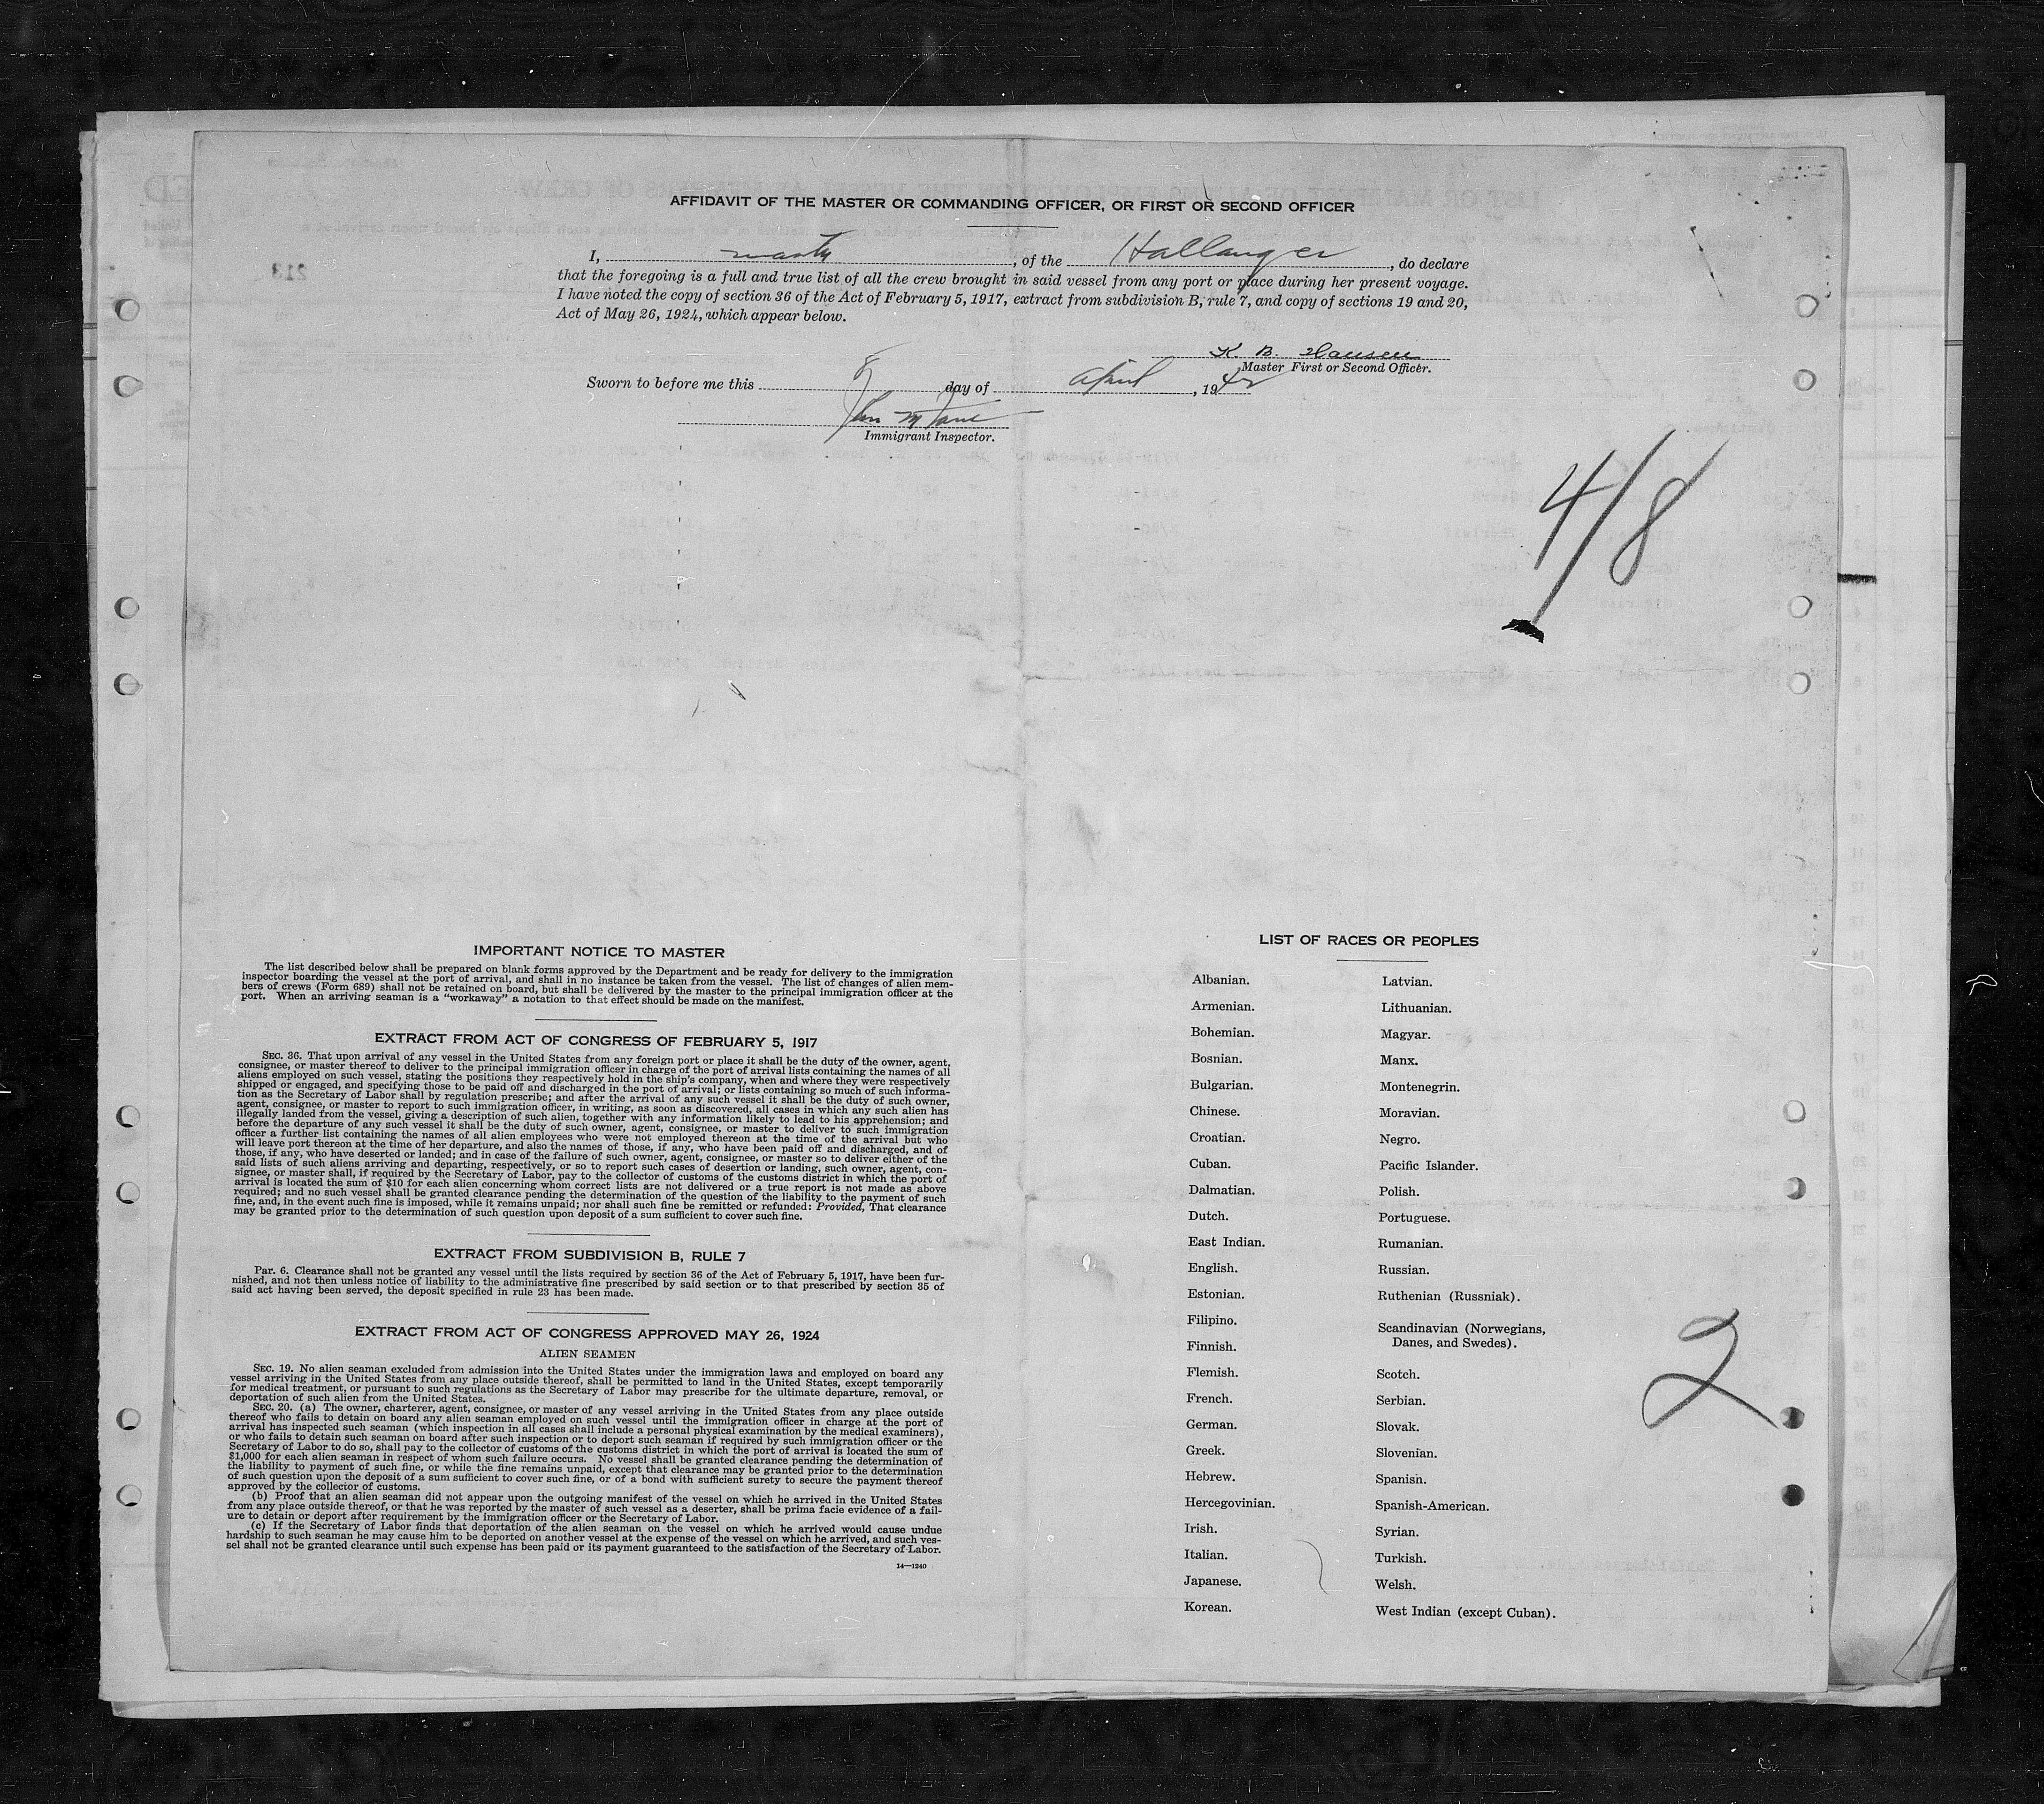 AFFIDAVIT OF THE MASTER OR COMMANDING OFFICER, OR FIRST OR SECOND OFFICER
I, master, of the Hallanger, do declare
that the foregoing is a full and true list of all the crew brought in said vessel from any port or place during her present voyage.
I have noted the copy of section 36 of the Act of February 5, 1917, extract from subdivision B, rule 7, and copy of sections 19 and 20,
Act of May 26, 1924, which appear below.
K. B. Hansen
Master First or Second Officer.
Sworn to before me this 8 day of April, 1942
Immigrant Inspector.
4/8
IMPORTANT NOTICE TO MASTER
The list described below shall be prepared on blank forms approved by the Department and be ready for delivery to the immigration
inspector boarding the vessel at the port of arrival, and shall in no instance be taken from the vessel. The list of changes of alien mem-
bers of crews (Form 689) shall not be retained on board, but shall be delivered by the master to the principal immigration officer at the
port. When an arriving seaman is a "workaway" a notation to that effect should be made on the manifest.
EXTRACT FROM ACT OF CONGRESS OF FEBRUARY 5, 1917
SEC. 36. That upon arrival of any vessel in the United States from any foreign port or place it shall be the duty of the owner, agent,
consignee, or master thereof to deliver to the principal immigration officer in charge of the port of arrival lists containing the names of all
aliens employed on such vessel, stating the positions they respectively hold in the ship's company, when and where they were respectively
shipped or engaged, and specifying those to be paid off and discharged in the port of arrival; or lists containing so much of such informa-
tion as the Secretary of Labor shall by regulation prescribe; and after the arrival of any such vessel it shall be the duty of such owner,
agent, consignee, or master to report to such immigration officer, in writing, as soon as discovered, all cases in which any such alien has
illegally landed from the vessel, giving a description of such alien, together with any information likely to lead to his apprehension; and
before the departure of any such vessel it shall be the duty of such owner, agent, consignee, or master to deliver to such immigration
officer a further list containing the names of all alien employees who were not employed thereon at the time of the arrival but who
will leave port thereon at the time of her departure, and also the names of those, if any, who have been paid off and discharged, and of
those, if any, who have deserted or landed; and in case of the failure of such owner, agent, consignee, or master so to deliver either of the
said lists of such aliens arriving and departing, respectively, or so to report such cases of desertion or landing, such owner, agent, con-
signee, or master shall, if required by the Secretary of Labor, pay to the collector of customs of the customs district in which the port of
arrival is located the sum of $10 for each alien concerning whom correct lists are not delivered or a true report is not made as above
required; and no such vessel shall be granted clearance pending the determination of the question of the liability to the payment of such
fine, and, in the event such fine is imposed, while it remains unpaid; nor shall such fine be remitted or refunded: Provided, That clearance
may be granted prior to the determination of such question upon deposit of a sum sufficient to cover such fine.
EXTRACT FROM SUBDIVISION B, RULE 7
Par. 6. Clearance shall not be granted any vessel until the lists required by section 36 of the Act of February 5, 1917, have been fur-
nished, and not then unless notice of liability to the administrative fine prescribed by said section or to that prescribed by section 35 of
said act having been served, the deposit specified in rule 23 has been made.
EXTRACT FROM ACT OF CONGRESS APPROVED MAY 26, 1924
ALIEN SEAMEN
SEC. 19. No alien seaman excluded from admission into the United States under the immigration laws and employed on board any
vessel arriving in the United States from any place outside thereof, shall be permitted to land in the United States, except temporarily
for medical treatment, or pursuant to such regulations as the Secretary of Labor may prescribe for the ultimate departure, removal, or
deportation of such alien from the United States.
SEC. 20. (a) The owner, charterer, agent, consignee, or master of any vessel arriving in the United States from any place outside
thereof who fails to detain on board any alien seaman employed on such vessel until the immigration officer in charge at the port of
arrival has inspected such seaman (which inspection in all cases shall include a personal physical examination by the medical examiners),
or who fails to detain such seaman on board after such inspection or to deport such seaman if required by such immigration officer or the
Secretary of Labor to do so, shall pay to the collector of customs of the customs district in which the port of arrival is located the sum of
$1,000 for each alien seaman in respect of whom such failure occurs. No vessel shall be granted clearance pending the determination of
the liability to payment of such fine, or while the fine remains unpaid, except that clearance may be granted prior to the determination
of such question upon the deposit of a sum sufficient to cover such fine, or of a bond with sufficient surety to secure the payment thereof
approved by the collector of customs.
(b) Proof that an alien seaman did not appear upon the outgoing manifest of the vessel on which he arrived in the United States
from any place outside thereof, or that he was reported by the master of such vessel as a deserter, shall be prima facie evidence of a fail-
ure to detain or deport after requirement by the immigration officer or the Secretary of Labor.
(c) If the Secretary of Labor finds that deportation of the alien seaman on the vessel on which he arrived would cause undue
hardship to such seaman he may cause him to be deported on another vessel at the expense of the vessel on which he arrived, and such ves-
sel shall not be granted clearance until such expense has been paid or its payment guaranteed to the satisfaction of the Secretary of Labor.
14—1240
LIST OF RACES OR PEOPLES
Albanian.
Armenian.
Bohemian.
Bosnian.
Bulgarian.
Chinese.
Croatian.
Cuban.
Dalmatian.
Dutch.
East Indian.
English.
Estonian.
Filipino.
Finnish.
Flemish.
French.
German.
Greek.
Hebrew.
Hercegovinian.
Irish.
Italian.
Japanese.
Korean.
Latvian.
Lithuanian.
Magyar.
Manx.
Montenegrin.
Moravian.
Negro.
Pacific Islander.
Polish.
Portuguese.
Rumanian.
Russian.
Ruthenian (Russniak).
Scandinavian (Norwegians,
Danes, and Swedes).
Scotch.
Serbian.
Slovak.
Slovenian.
Spanish.
Spanish-American.
Syrian.
Turkish.
Welsh.
West Indian (except Cuban).
2